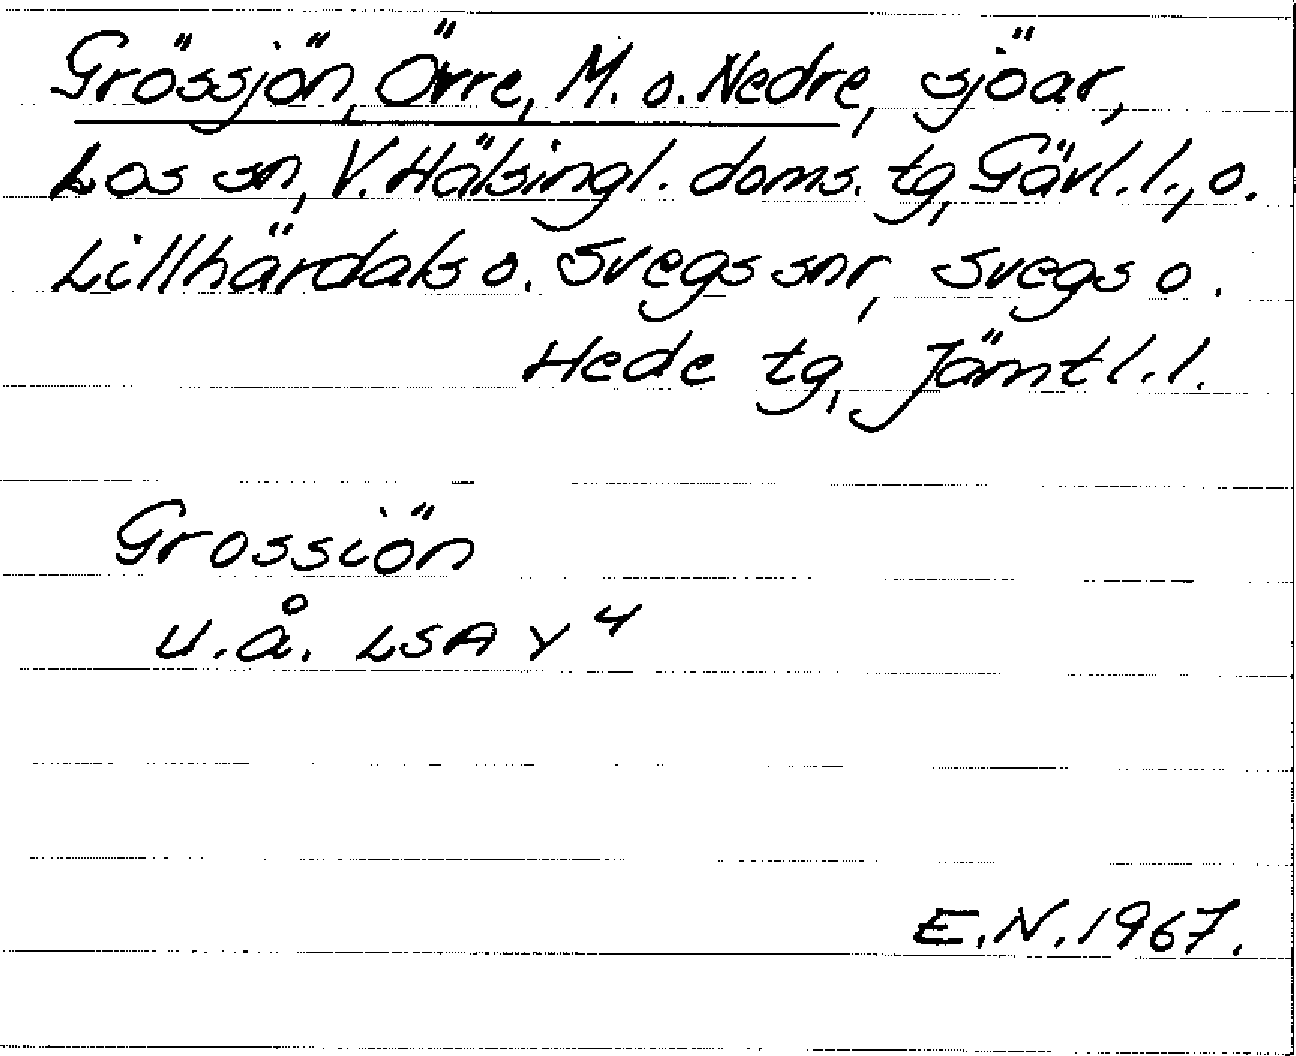 Grössjön, Övre, M. o. Nedre, sjöar,
Los sn, V. Hälsingl. doms. tg, Gävl. l., o.
Lillhärdals o. Svegs snr, Svegs o.
Hede tg, Jämtl. l.
Grossiön
u.å. LSA Y 4
E.N. 1967.